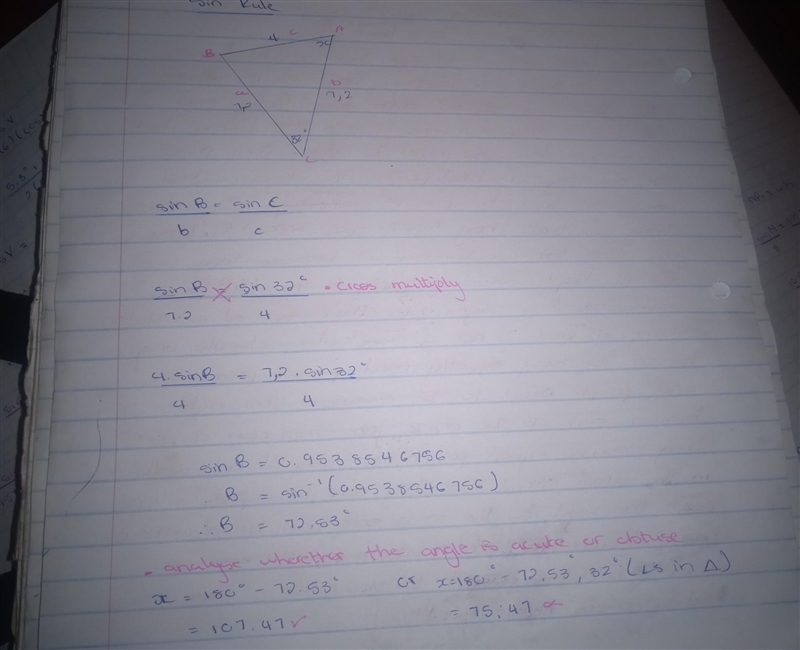 Sin Rule
4 c A
B x
a b
7,2
32°
C
sin B = sin C
b c
sin B = sin 32° • cross multiply
7.2 4
4.sinB = 7,2 . sin32°
4 4
sin B = 0.9538546756
B = sin⁻¹(0.9538546756)
∴ B = 72.53°
• analyse wherether the angle is acute or obtuse
x = 180° - 72.53° or x=180° - 72,53°, 32° (∠s in Δ)
= 107.47 ✓ = 75,47 ×